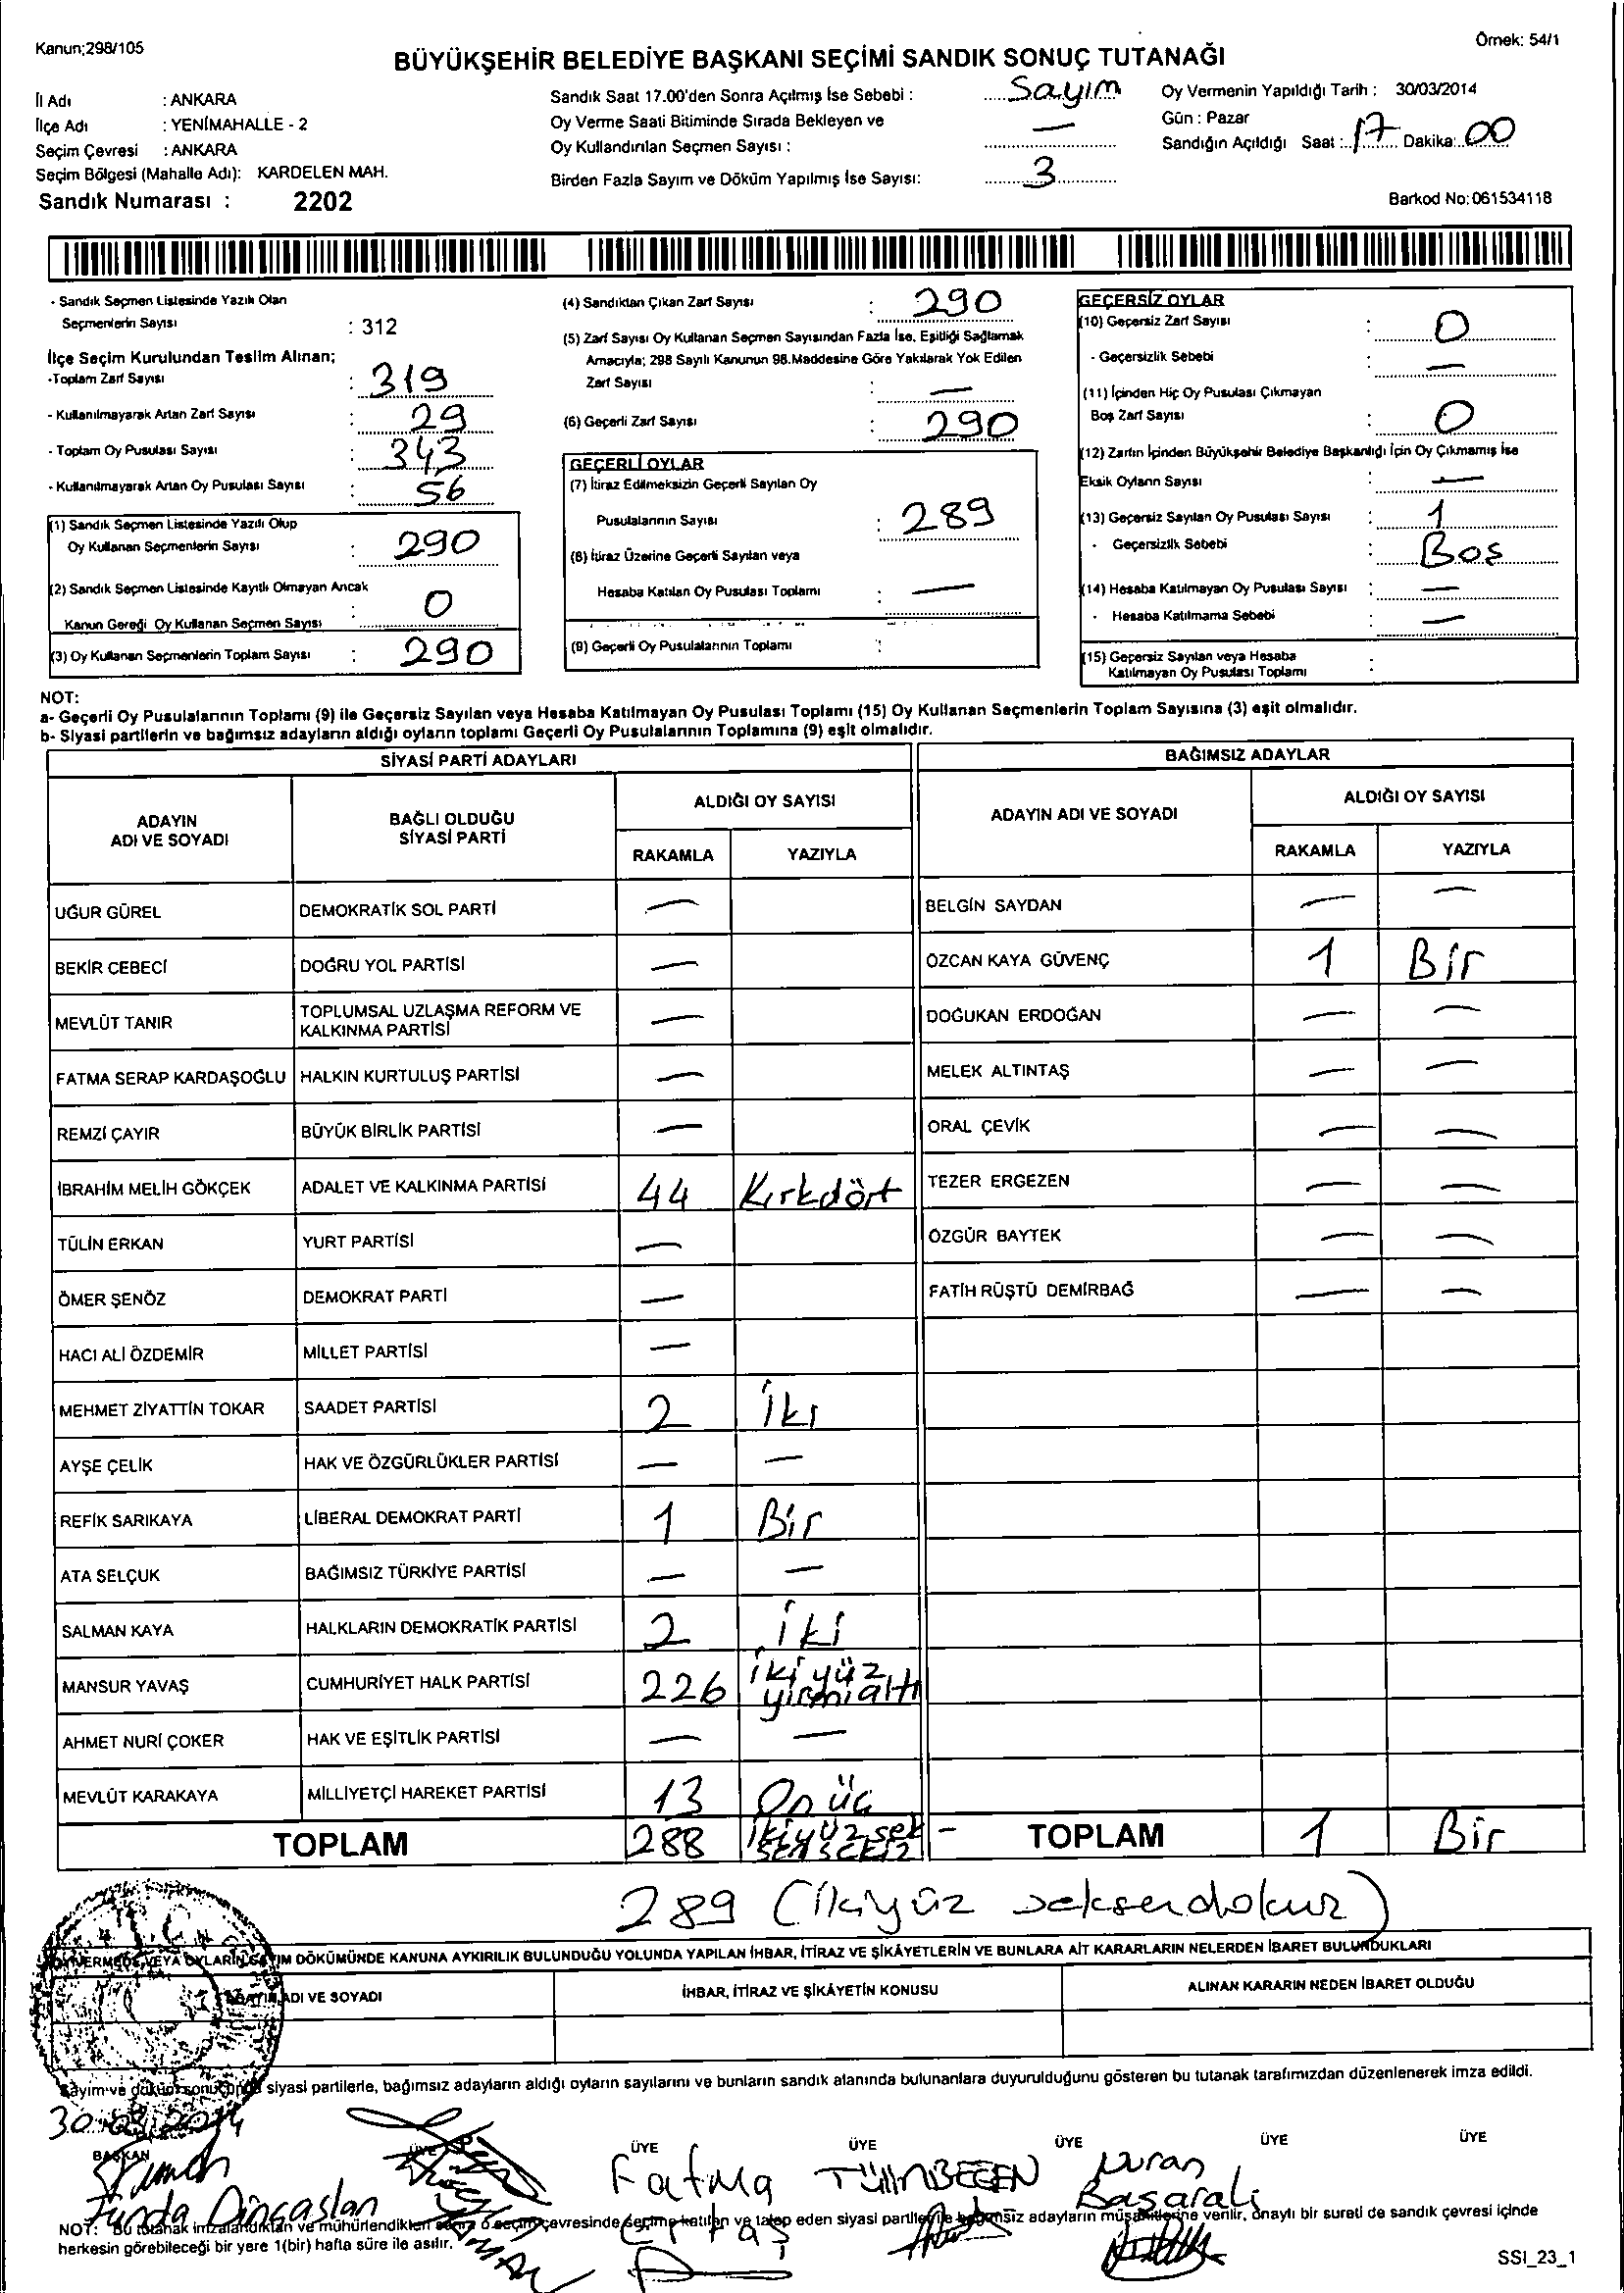 Kanun;298/105
Örnek: 54/1
BÜYÜKŞEHİR BELEDİYE BAŞKANI SEÇİMİ SANDIK SONUÇ TUTANAĞI
İl Adı : ANKARA
İlçe Adı : YENİMAHALLE - 2
Seçim Çevresi : ANKARA
Seçim Bölgesi (Mahalle Adı): KARDELEN MAH.
Sandık Numarası : 2202
Sandık Saat 17.00'den Sonra Açılmış İse Sebebi : Sayım
Oy Verme Saati Bitiminde Sırada Bekleyen ve
Oy Kullandırılan Seçmen Sayısı : —
Birden Fazla Sayım ve Döküm Yapılmış İse Sayısı: 3
Oy Vermenin Yapıldığı Tarih : 30/03/2014
Gün : Pazar
Sandığın Açıldığı Saat : 17 Dakika: 00
Barkod No: 061534118
- Sandık Seçmen Listesinde Yazılı Olan
Seçmenlerin Sayısı : 312
İlçe Seçim Kurulundan Teslim Alınan;
-Toplam Zarf Sayısı : 319
- Kullanılmayarak Artan Zarf Sayısı : 29
- Toplam Oy Pusulası Sayısı : 343
- Kullanılmayarak Artan Oy Pusulası Sayısı : 56
(1) Sandık Seçmen Listesinde Yazılı Olup
Oy Kullanan Seçmenlerin Sayısı : 290
(2) Sandık Seçmen Listesinde Kayıtlı Olmayan Ancak
Kanun Gereği Oy Kullanan Seçmen Sayısı : 0
(3) Oy Kullanan Seçmenlerin Toplam Sayısı : 290
(4) Sandıktan Çıkan Zarf Sayısı : 290
(5) Zarf Sayısı Oy Kullanan Seçmen Sayısından Fazla İse, Eşitliği Sağlamak
Amacıyla; 298 Sayılı Kanunun 98.Maddesine Göre Yakılarak Yok Edilen
Zarf Sayısı : —
(6) Geçerli Zarf Sayısı : 290
GEÇERLİ OYLAR
(7) İtiraz Edilmeksizin Geçerli Sayılan Oy
Pusulalarının Sayısı : 289
(8) İtiraz Üzerine Geçerli Sayılan veya
Hesaba Katılan Oy Pusulası Toplamı : —
(9) Geçerli Oy Pusulalarının Toplamı :
GEÇERSİZ OYLAR
(10) Geçersiz Zarf Sayısı : 0
- Geçersizlik Sebebi : —
(11) İçinden Hiç Oy Pusulası Çıkmayan
Boş Zarf Sayısı : 0
(12) Zarfın İçinden Büyükşehir Belediye Başkanlığı İçin Oy Çıkmamış İse
Eksik Oyların Sayısı : —
(13) Geçersiz Sayılan Oy Pusulası Sayısı : 1
- Geçersizlik Sebebi : Boş
(14) Hesaba Katılmayan Oy Pusulası Sayısı : —
- Hesaba Katılmama Sebebi : —
(15) Geçersiz Sayılan veya Hesaba
Katılmayan Oy Pusulası Toplamı :
NOT:
a- Geçerli Oy Pusulalarının Toplamı (9) ile Geçersiz Sayılan veya Hesaba Katılmayan Oy Pusulası Toplamı (15) Oy Kullanan Seçmenlerin Toplam Sayısına (3) eşit olmalıdır.
b- Siyasi partilerin ve bağımsız adayların aldığı oyların toplamı Geçerli Oy Pusulalarının Toplamına (9) eşit olmalıdır.
SİYASİ PARTİ ADAYLARI
ADAYIN ADI VE SOYADI
BAĞLI OLDUĞU SİYASİ PARTİ
ALDIĞI OY SAYISI
RAKAMLA YAZIYLA
UĞUR GÜREL DEMOKRATİK SOL PARTİ —
BEKİR CEBECİ DOĞRU YOL PARTİSİ —
MEVLÜT TANIR TOPLUMSAL UZLAŞMA REFORM VE KALKINMA PARTİSİ —
FATMA SERAP KARDAŞOĞLU HALKIN KURTULUŞ PARTİSİ —
REMZİ ÇAYIR BÜYÜK BİRLİK PARTİSİ —
İBRAHİM MELİH GÖKÇEK ADALET VE KALKINMA PARTİSİ 44 Kırkdört
TÜLİN ERKAN YURT PARTİSİ —
ÖMER ŞENÖZ DEMOKRAT PARTİ —
HACI ALİ ÖZDEMİR MİLLET PARTİSİ —
MEHMET ZİYATTİN TOKAR SAADET PARTİSİ 2 İki
AYŞE ÇELİK HAK VE ÖZGÜRLÜKLER PARTİSİ — —
REFİK SARIKAYA LİBERAL DEMOKRAT PARTİ 1 Bir
ATA SELÇUK BAĞIMSIZ TÜRKİYE PARTİSİ — —
SALMAN KAYA HALKLARIN DEMOKRATİK PARTİSİ 2 iki
MANSUR YAVAŞ CUMHURİYET HALK PARTİSİ 226 ikiyüz yirmialtı
AHMET NURİ ÇOKER HAK VE EŞİTLİK PARTİSİ — —
MEVLÜT KARAKAYA MİLLİYETÇİ HAREKET PARTİSİ 13 Onüç
TOPLAM 288 ikiyüzsek - sensekiz
BAĞIMSIZ ADAYLAR
ADAYIN ADI VE SOYADI
ALDIĞI OY SAYISI
RAKAMLA YAZIYLA
BELGİN SAYDAN — —
ÖZCAN KAYA GÜVENÇ 1 Bir
DOĞUKAN ERDOĞAN — —
MELEK ALTINTAŞ — —
ORAL ÇEVİK — —
TEZER ERGEZEN — —
ÖZGÜR BAYTEK — —
FATİH RÜŞTÜ DEMİRBAĞ — —
TOPLAM 1 Bir
289 (ikiyüz seksendokuz)
OY VERMEDE VEYA OYLARIN SAYIM DÖKÜMÜNDE KANUNA AYKIRILIK BULUNDUĞU YOLUNDA YAPILAN İHBAR, İTİRAZ VE ŞİKÂYETLERİN VE BUNLARA AİT KARARLARIN NELERDEN İBARET BULUNDUKLARI
ADI VE SOYADI
İHBAR, İTİRAZ VE ŞİKÂYETİN KONUSU
ALINAN KARARIN NEDEN İBARET OLDUĞU
Sayım ve döküm sonucunda siyasi partilerle, bağımsız adayların aldığı oyların sayılarını ve bunların sandık alanında bulunanlara duyurulduğunu gösteren bu tutanak tarafımızdan düzenlenerek imza edildi.
30.03.2014
BAŞKAN ÜYE ÜYE ÜYE ÜYE ÜYE ÜYE
Funda Dinçaslan
Fatma
TÜLİN BEĞEN
Nuran Başaralı
NOT: Bu tutanak imzalandıktan ve mühürlendikten sonra o seçim çevresinde seçime katılan ve talep eden siyasi partilerle bağımsız adayların müşahitlerine verilir, onaylı bir sureti de sandık çevresi içinde
herkesin görebileceği bir yere 1(bir) hafta süre ile asılır.
SSI_23_1